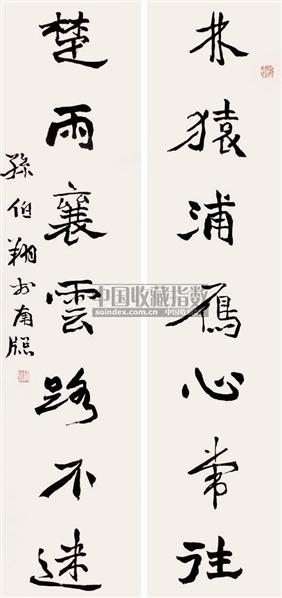 林猿浦鴈心常往
楚雨襄雲路不迷
孫伯翔於南
中国收藏指数